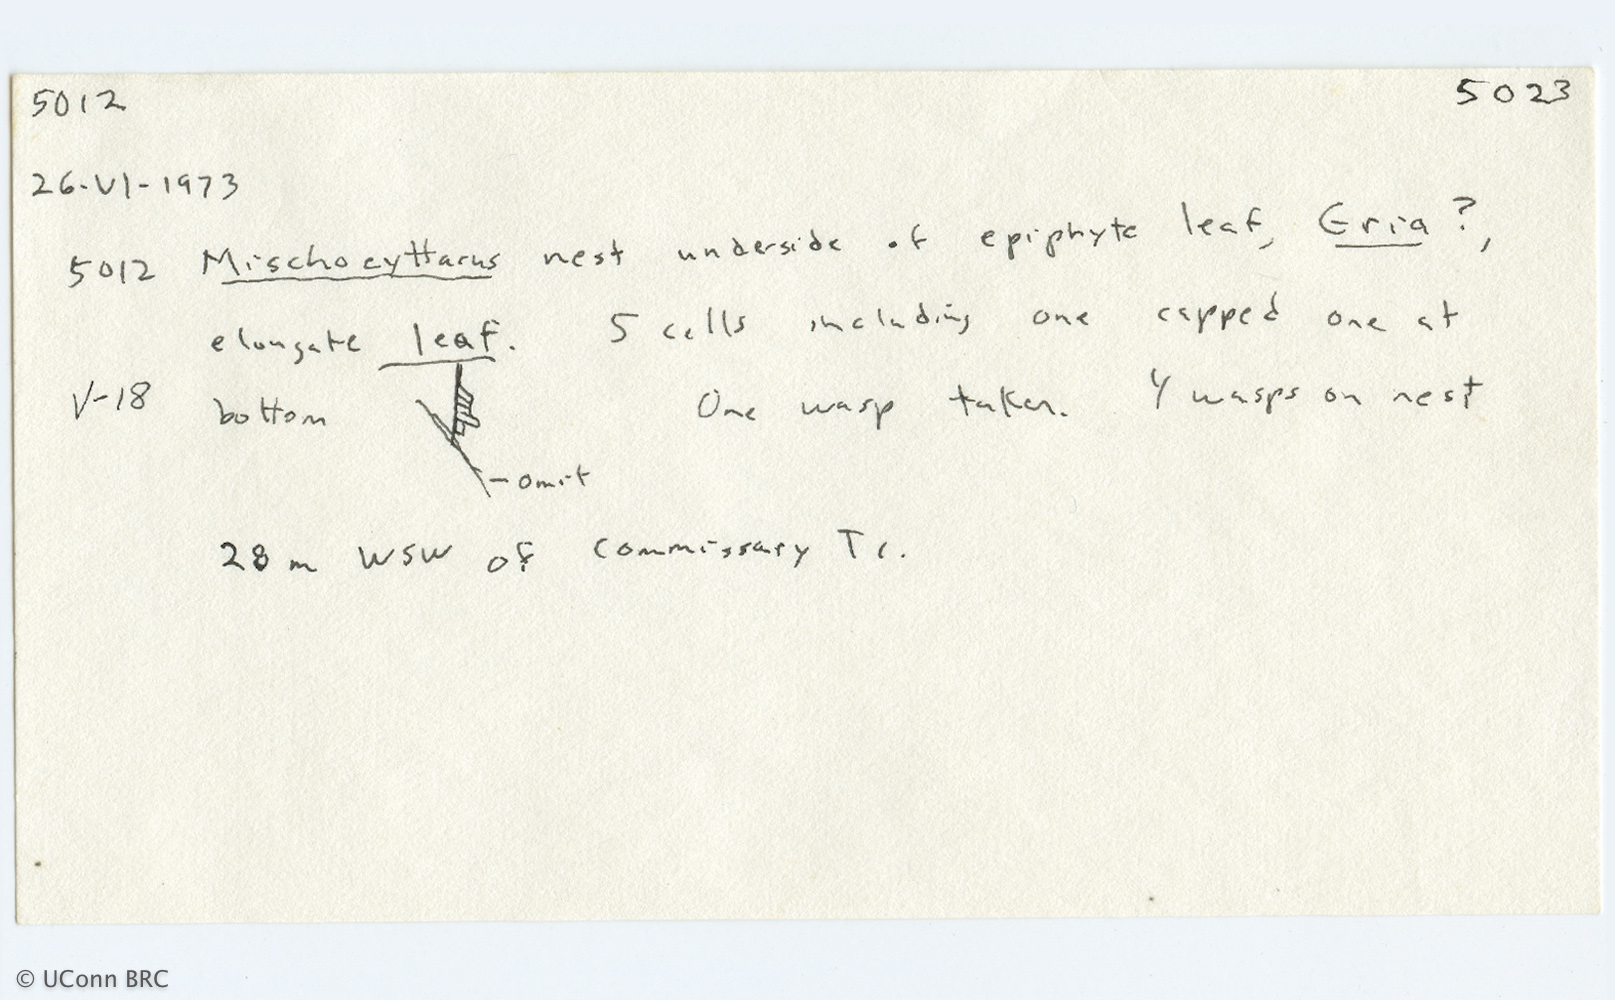 5012 5023
26-VI-1973
5012 Mischocyttarus nest underside of epiphyte leaf, Eria?,
elongate leaf. 5 cells including one capped one at
V-18 bottom One wasp taken. 4 wasps on nest
-omit
28 m WSW of Commissary Tr.
© UConn BRC